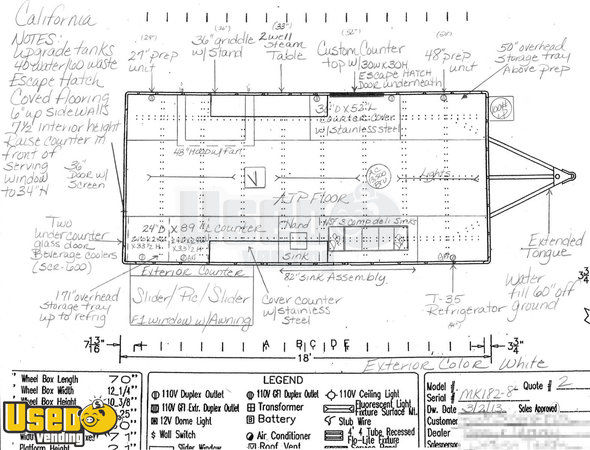 California
NOTES:
Upgrade tanks
40 water/60 waste
Escape Hatch
Coved flooring
6" up sidewalls
7 1/2 interior height
Raise counter in
front of
serving
window
to 34"H
(29")
27" prep
unit
(36")
36" griddle
w/stand
(33")
2 well
steam
Table
(52")
Custom Counter
top w/ 30W x 30H
ESCAPE HATCH
Door underneath
48" prep
unit
50" overhead
storage tray
Above prep
36"
Door w/
Screen
48" Hood w/Fan
w/stainless steel
V
Lights
ATP FLOOR
Two
undercounter
glass door
Beverage coolers
24"D x 89"L COUNTER
Hand
Sink
82" Sink Assembly
Exterior Counter
171" overhead
storage tray
up to refrig
Slider/Pic/Slider
F1 window w/Awning
Cover counter
w/stainless
steel
I-35
Refrigerator
Extended
Tongue
Water
fill 60" off
ground
7 3/16
A B C D E
18'
3 3/4
Exterior Color White
Wheel Box Length 70"
Wheel Box Width 12,1/4"
Wheel Box Height 10,3/8
Platform Height
UseD
vending
LEGEND
110V Duplex Outlet
110V GFI Duplex Outlet
110V Ceiling Light
110V GFI Ext. Duplex Outlet
Transformer
Fluorescent Light
Fixture Surface Mt.
12V Dome Light
Battery
Stub Wire
Wall Switch
Air Conditioner
4' 4 Tube Recessed
Flo-Lite Fixture
Slider Window
Roof Vent
Model #: MK182-8
Quote # 2
Dw. Date 3/2/13
Sales Approved
Customer
Dealer
Salesperson